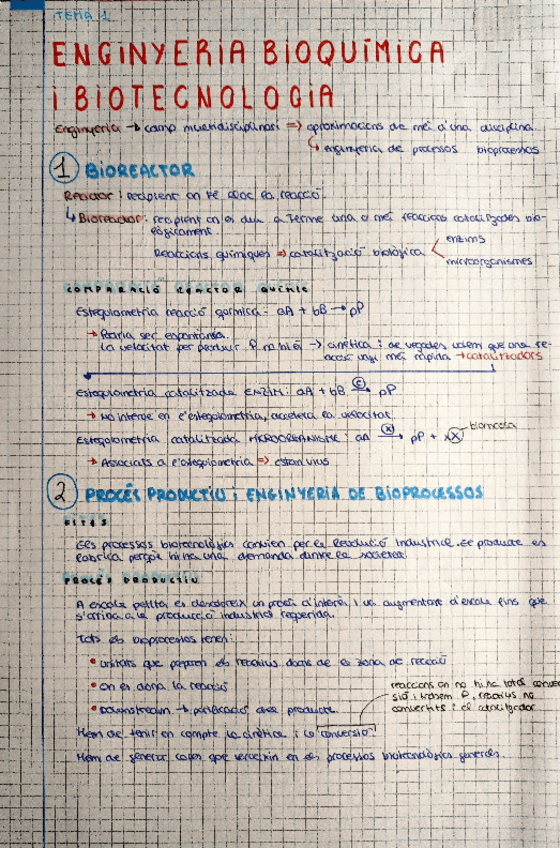 TEMA 1
ENGINYERIA BIOQUÍMICA
i BIOTECNOLOGIA
Enginyeria → camp multidisciplinari ⇒ aproximacions de més d'una disciplina
↳ enginyeria de processos bioprocessos
1 BIOREACTOR
Reactor: recipient on té lloc la reacció.
↳ Bioreactor: recipient on es duu a terme una o més reaccions catalitzades bio-
lògicament
enzims
Reaccions químiques ⇒ catalització biològica
microorganismes
COMPARACIÓ REACTOR QUÍMIC
Estequiometria reacció química: aA + bB → pP
→ Podria ser espontània.
La velocitat per produir P ve → cinètica i de vegades volem que una re-
acció vagi més ràpida → catalitzadors
Estequiometria catalitzada ENZIM: aA + bB → pP
→ No intervé en l'estequiometria, accelera la velocitat
biomassa
Estequiometria catalitzada MICROORGANISME: aA → pP + xX
→ Associats a l'estequiometria ⇒ estan vius
2 PROCÉS PRODUCTIU i ENGINYERIA DE BIOPROCESSOS
FITES
Els processos biotecnològics canvien per la Revolució Industrial. El producte es
fabrica perquè hi ha una demanda dintre la societat
PROCÉS PRODUCTIU
A escala petita es desenvolupa un procés d'interès i va augmentant d'escala fins que
s'arriba a la producció industrial requerida.
Tots els bioprocessos tenen:
• unitats que preparen els reactius abans de la zona de reacció
reaccions on no hi ha total conver-
• on es dona la reacció
sió i tindrem P, reactius no
• Downstream → purificació dels productes
convertits i el catalitzador
Hem de tenir en compte la cinètica i la conversió!
Hem de generar calor que en els processos biotecnològics generals.